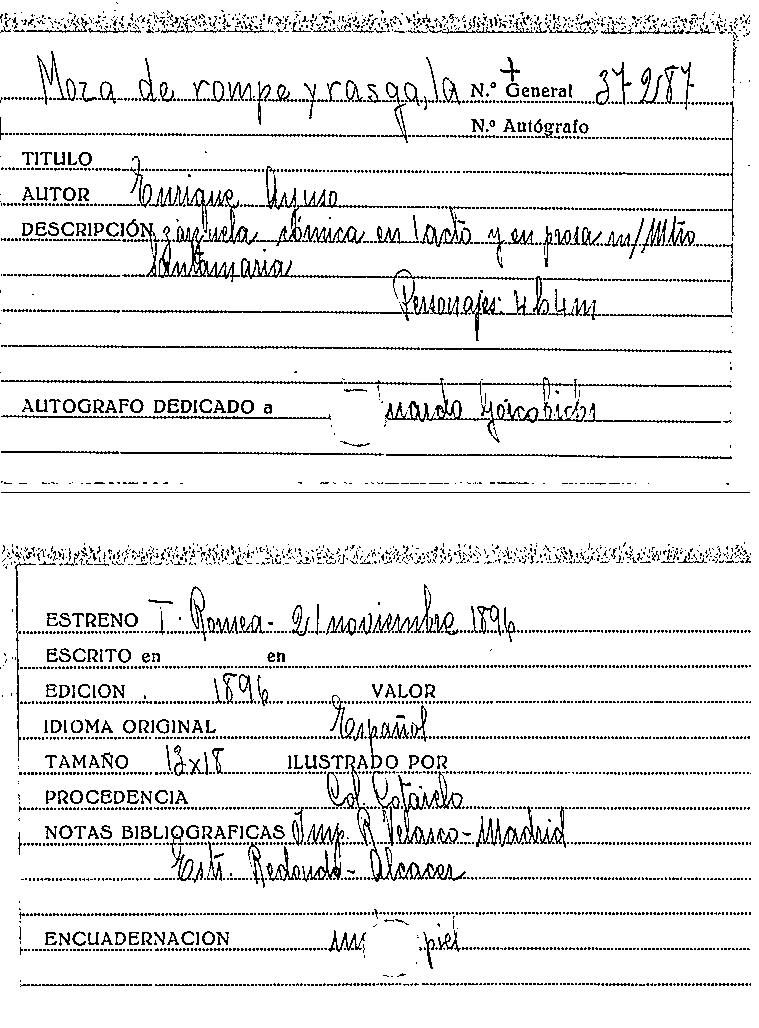 Moza de rompe y rasga, la N.º General 37-287
N.º Autógrafo
TITULO
AUTOR Enrique Ayuso
DESCRIPCIÓN zarzuela cómica en 1 acto y en prosa m/ Mtro
Santamaria
Personajes: 4 h 4 m
AUTOGRAFO DEDICADO a
ESTRENO T. Romea - 21 noviembre 1896
ESCRITO en en
EDICION . 1896 VALOR
IDIOMA ORIGINAL Español
TAMAÑO 13x18 ILUSTRADO POR
PROCEDENCIA Col. Cotarelo
NOTAS BIBLIOGRAFICAS Imp. R. Velasco - Madrid
Estr. Redondo - Alcacer
ENCUADERNACION piel